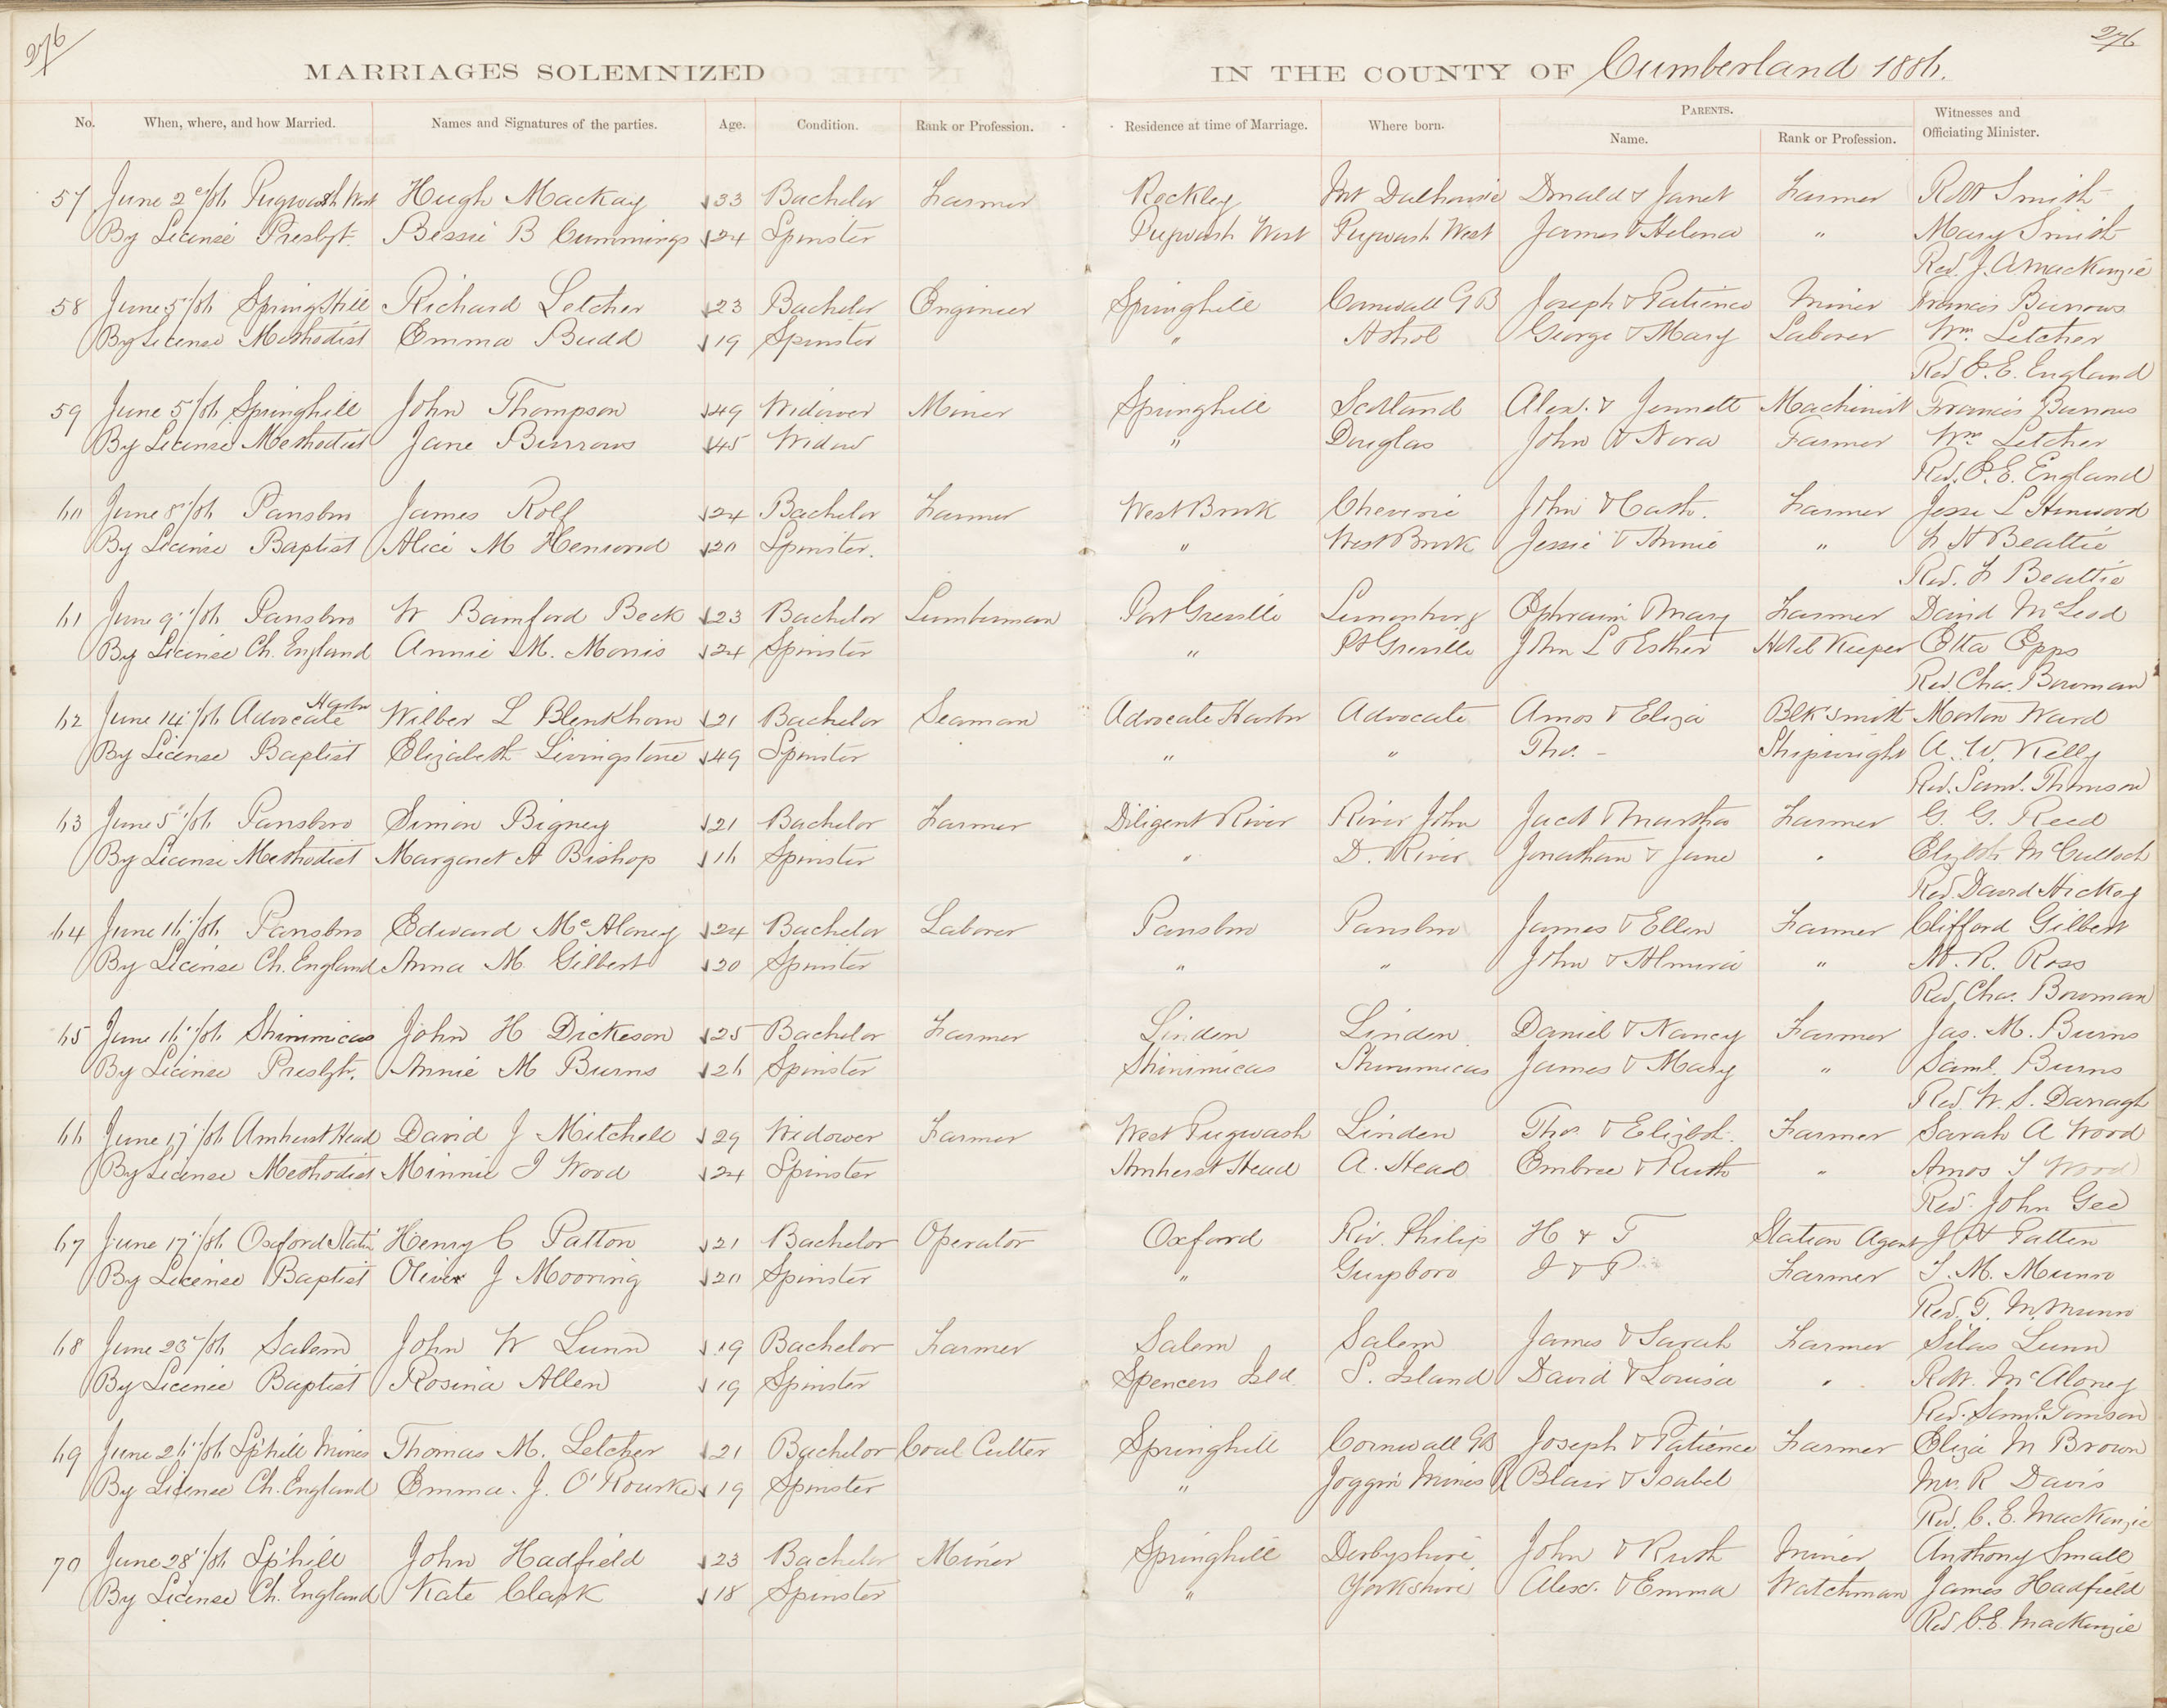 276
276
MARRIAGES SOLEMNIZED IN THE COUNTY OF Cumberland 1886.
No. When, where, and how Married. Names and Signatures of the parties. Age. Condition. Rank or Profession. Residence at time of Marriage. Where born. PARENTS. Witnesses and
Name. Rank or Profession. Officiating Minister.
57 June 2 /86 Pugwash West Hugh Mackay 33 Bachelor Farmer Rockley Mt Dalhousie Donald & Janet Farmer Robt Smith
By License Presbyt. Bessie B Cummings 24 Spinster Pugwash West Pugwash West James & Helena " Mary Smith
Rev. J. A MacKenzie
58 June 5"/86 SpringHill Richard Letcher 23 Bachelor Engineer Springhill Cornwall G B Joseph & Patience Miner Francis Burrows
By License Methodist Emma Budd 19 Spinster " Athol George & Mary Laborer Wm. Letcher
Rev P. E. England
59 June 5/86 Springhill John Thompson 49 Widower Miner Springhill Scotland Alex. & Jennett Machinist Francis Burrows
By License Methodist Jane Burrows 45 Widow " Douglas John & Nora Farmer Wm Letcher
Rev. P. E. England
60 June 8"/86 Parrsboro James Rolf 24 Bachelor Farmer West Brook Cheverie John & Cath. Farmer Jesse L Henwood
By License Baptist Alice M Henwood 20 Spinster. " West Brook Jessie & Annie " F H Beattie
Rev. F Beattie
61 June 9"/86 Parrsboro W Bamford Beck 23 Bachelor Lumberman Port Greville Lunenburg Ephraim & Mary Farmer David McLeod
By License Ch. England Annie M. Morris 24 Spinster " Pt Greville John L & Esther Hotel Keeper Etta Epps
Rev. Chas. Bowman
62 June 14"/86 Advocate Harbor Wilber L Blenkhorn 21 Bachelor Seaman Advocate Harbor Advocate Amos & Eliza Blk smith Morton Ward
By License Baptist Elizabeth Livingstone 49 Spinster " " Tho. - Shipwright A. W. Kelly
Rev. Saml. Thomson
63 June 5"/86 Parrsboro Simon Bigney 21 Bachelor Farmer Diligent River River John Jacob & Martha Farmer G. G. Reed
By License Methodist Margaret A Bishop 16 Spinster " D. River Jonathan & Jane " Elizbth McCulloch
Rev. David Hickey
64 June 16"/86 Parrsboro Edward McAloney 24 Bachelor Laborer Parrsboro Parrsboro James & Ellen Farmer Clifford Gilbert
By License Ch. England Anna M. Gilbert 20 Spinster " " John & Almira " M. R. Ross
Rev. Chas. Bowman
65 June 16"/86 Shinimicas John H Dickeson 25 Bachelor Farmer Linden Linden Daniel & Nancy Farmer Jas. M. Burns
By License Presbyt. Annie M Burns 26 Spinster Shinimicas Shinimicas James & Mary " Saml. Burns
Rev. W. S. Darragh
66 June 17"/86 Amherst Head David J Mitchell 29 Widower Farmer West Pugwash Linden Thos. & Elizbt. Farmer Sarah A Wood
By License Methodist Minnie J Wood 24 Spinster Amherst Head A. Head Embree & Ruth " Amos T Wood
Rev. John Gee
67 June 17"/86 Oxford Station Henry C Patton 21 Bachelor Operator Oxford Riv. Philip H & T Station Agent J H Patten
By License Baptist Olive J Mooring 20 Spinster " Guysboro J & P Farmer T. M. Munro
Rev. T. M. Munro
68 June 23"/86 Salem John W Lunn 19 Bachelor Farmer Salem Salem James & Sarah Farmer Silas Lunn
By License Baptist Rosina Allen 19 Spinster Spencers Isld. S. Island David & Louisa " Robt. McAloney
Rev. Saml. Tomson
69 June 26"/86 Sp'hill Mines Thomas M. Letcher 21 Bachelor Coal Cutter Springhill Cornwall GB Joseph & Patience Farmer Eliza M Brown
By License Ch. England Emma. J. O'Rourke 19 Spinster " Joggin Mines R Blair & Isabel Mrs. R Davis
Rev. C. E. MacKenzie
70 June 28"/86 Sp'hill John Hadfield 23 Bachelor Miner Springhill Derbyshire John & Ruth Miner Anthony Small
By License Ch. England Kate Clark 18 Spinster " Yorkshire Alex. & Emma Watchman James Hadfield
Rev. C. E. MacKenzie